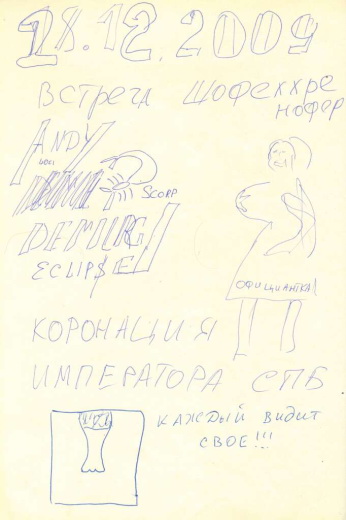 28.12.2009
ВСТРЕЧА ШОФЕККРЕ
НОФЕР
ANDY
SCORP
DEMIURG
ECLIPSE
ОФИЦИАНТКА!
КОРОНАЦИЯ
ИМПЕРАТОРА СПБ
КАЖДЫЙ ВИДИТ
СВОЕ!!!